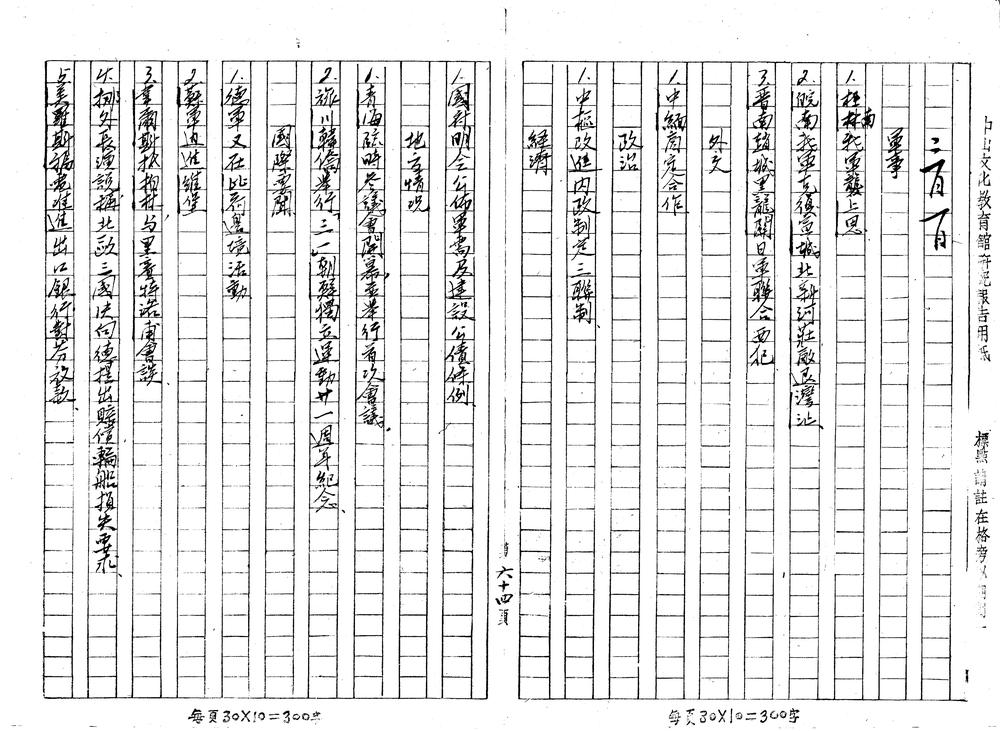 中山文化教育館研究報告用紙
標點請註在格旁
三月一日
軍事
1. 桂南我軍襲上思
2. 皖南我軍克復宣城北新河莊敵退灣沚、
3. 晋南趙城黑龍關日軍聯合西犯
外交
1. 中緬商定合作
政治
1. 中樞改進內政制定三聯制
經濟
第六十四頁
1. 國府明令公佈軍需及建設公債條例
地方情況
1. 青海臨時參議會開幕並舉行首次會議.
2. 旅川韓僑舉行「三一」朝鮮獨立運動廿一週年紀念、
國際要聞
1. 德軍又在比荷邊境活動
2. 蘇軍迫進維堡
3. 韋爾斯抵柏林与里賓特洛甫會談
4. 挪外長演說稱北歐三國决向德提出賠償輪船損失要求、
5. 美羅斯福電准進出口銀行對芬放款.
每頁30×10=300字
每頁30×10=300字